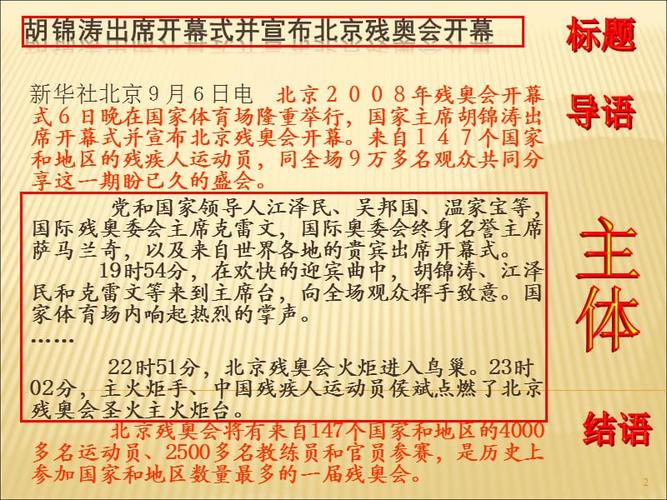 胡锦涛出席开幕式并宣布北京残奥会开幕
标题
新华社北京９月６日电　北京２００８年残奥会开幕
式６日晚在国家体育场隆重举行，国家主席胡锦涛出
席开幕式并宣布北京残奥会开幕。来自１４７个国家
和地区的残疾人运动员，同全场９万多名观众共同分
享这一期盼已久的盛会。
导语
党和国家领导人江泽民、吴邦国、温家宝等，
国际残奥委会主席克雷文，国际奥委会终身名誉主席
萨马兰奇，以及来自世界各地的贵宾出席开幕式。
19时54分，在欢快的迎宾曲中，胡锦涛、江泽
民和克雷文等来到主席台，向全场观众挥手致意。国
家体育场内响起热烈的掌声。
……
22时51分，北京残奥会火炬进入鸟巢。23时
02分，主火炬手、中国残疾人运动员侯斌点燃了北京
残奥会圣火主火炬台。
主体
北京残奥会将有来自147个国家和地区的4000
多名运动员、2500多名教练员和官员参赛，是历史上
参加国家和地区数量最多的一届残奥会。
结语
2